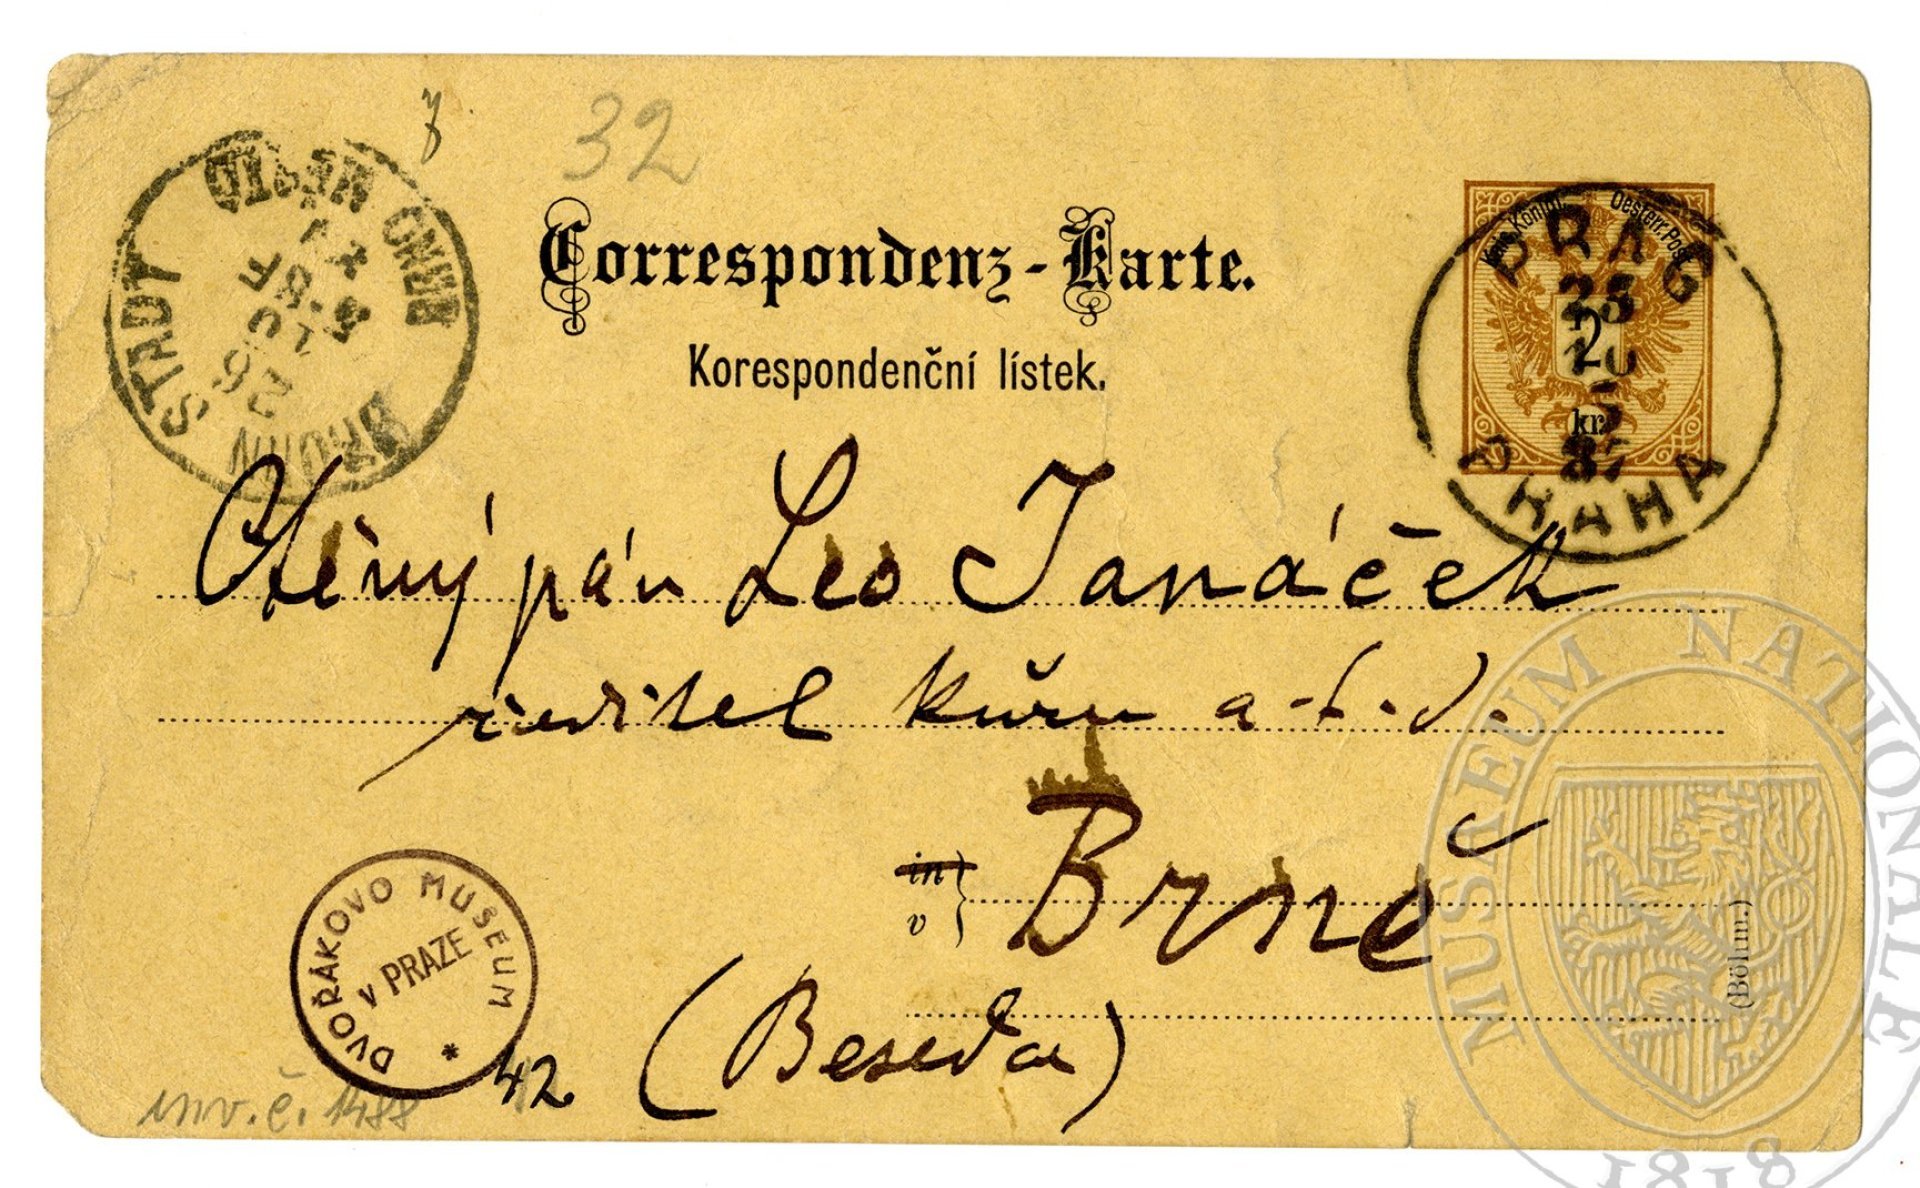 z.
32
Correspondenz-Karte.
Korespondenční lístek.
BRÜNN STADT
BRNO
26
Kais. Königl. Oesterr. Post
2
kr.
PRAG
25
10
87
PRAHA
Ctěný pán Leo Janáček
ředitel kůru a.t.d.
in
v } Brně
(Beseda)
(Böhm.)
DVOŘÁKOVO MUSEUM
v PRAZE
*
42
inv. č. 1488
MUSAEUM NATIONALE
1818